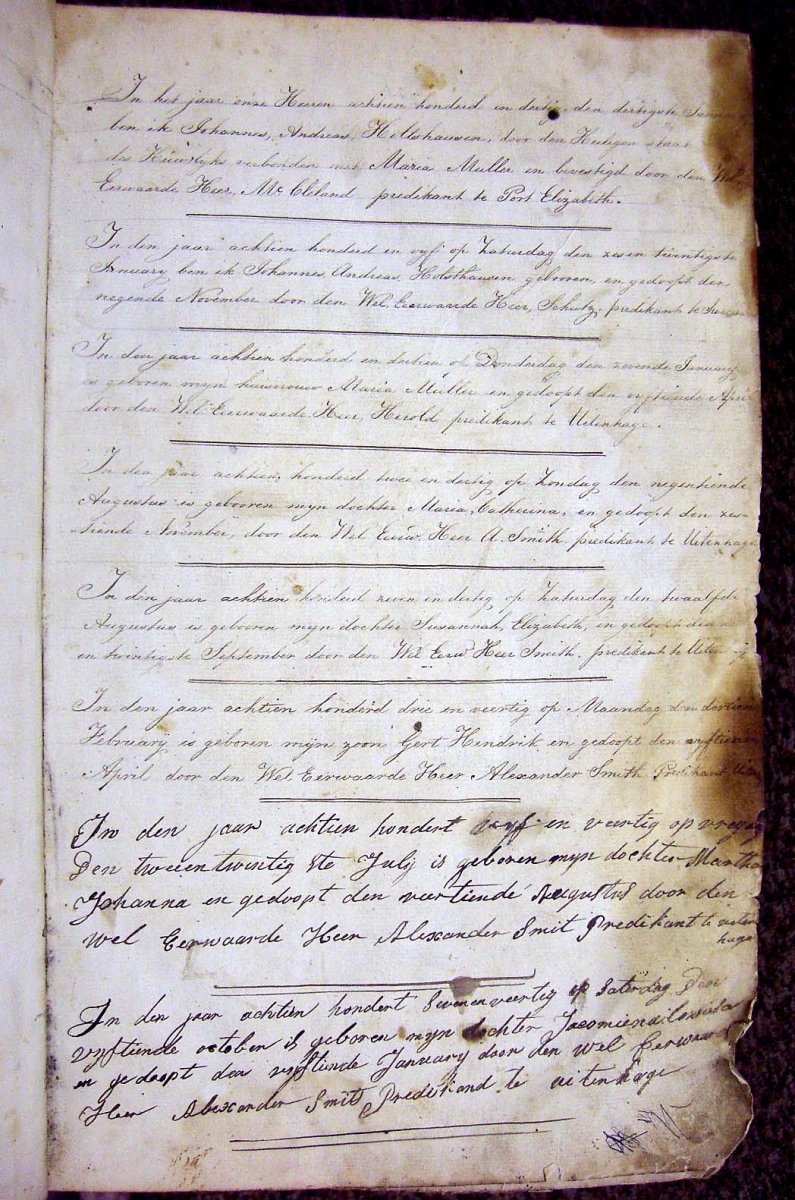 In het jaar onze Heeren achtien honderd en dertig den dertigste
ben ik Johannes, Andreas, Holtshausen, door den Heiligen staat
des Huwlyks verbonden met Maria Muller en bevestigd door den Wel
Eerwaarde Heer, Mc Cleland predikant te Port Elizabeth.
In den jaar achtien honderd en vyf op Zaturdag den zesen twentigste
January ben ik Johannes, Andreas, Holsthausen geboren, en gedoopt den
negende November door den Wel. Eerwaarde Heer, Schutz, predikant te
In den jaar achtien honderd en dertien op Donderdag den zevende January
is geboren myn huisvrouw Maria Muller en gedoopt den vyftiende April
door den Wel. Eerwaarde Heer, Herold predikant te Uitenhage.
In den jaar achtien honderd twee en dertig op Zondag den negentiende
Augustus is geboren myn dochter Maria, Catherina, en gedoopt den zes-
tiende November, door den Wel Eerw. Heer A. Smith predikant te Uitenhage
In den jaar achtien honderd zeven en dertig op Zaturdag den twaalfde
Augustus is geboren myn dochter Susannah, Elizabeth, en gedoopt den
en twintigste September door den Wel Eerw Heer Smith, predikant te
In den jaar achtien honderd drie en veertig op Maandag den dertien
February is geboren mijn zoon Gert Hendrik en gedoopt den vyftiende
April door den Wel Eerwaarde Heer Alexander Smith Predikant
In den jaar achtien hondert vyf en veertig op vrydag
Den tweentwintig ste Julij is geboren myn dochter Martha
Johanna en gedoopt den veertiende Augustus door den
Wel Eerwaarde Heer Alexander Smit Predikant te uiten
hage
In den jaar achtien hondert Sevenenveertig op Saterdag Den
vyftiende october is geboren myn dochter Jacomiena
en gedoopt den vyftiende January door den wel Eerwaard
Heer Alexander Smith Predikand te uitenhage